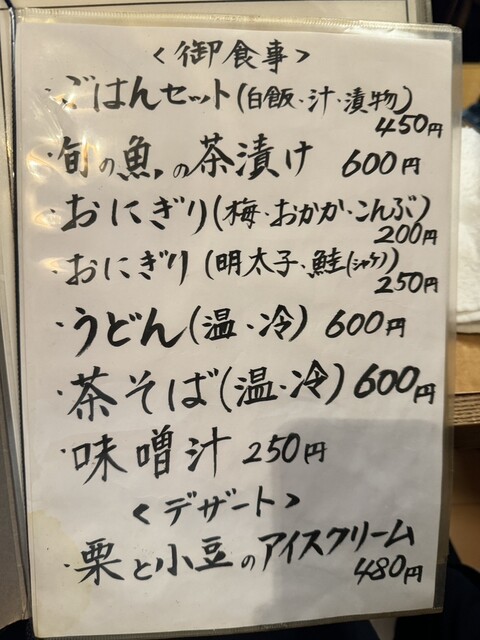 <御食事>
・ごはんセット(白飯・汁・漬物)
450円
・旬の魚の茶漬け 600円
・おにぎり(梅・おかか・こんぶ)
200円
・おにぎり(明太子・鮭(シャケ))
250円
・うどん(温・冷) 600円
・茶そば(温・冷) 600円
・味噌汁 250円
<デザート>
・栗と小豆のアイスクリーム
480円